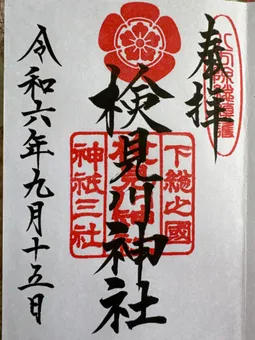 奉拝
八方除総鎮護
検見川神社
下總之國
神祇三社
令和六年九月十五日